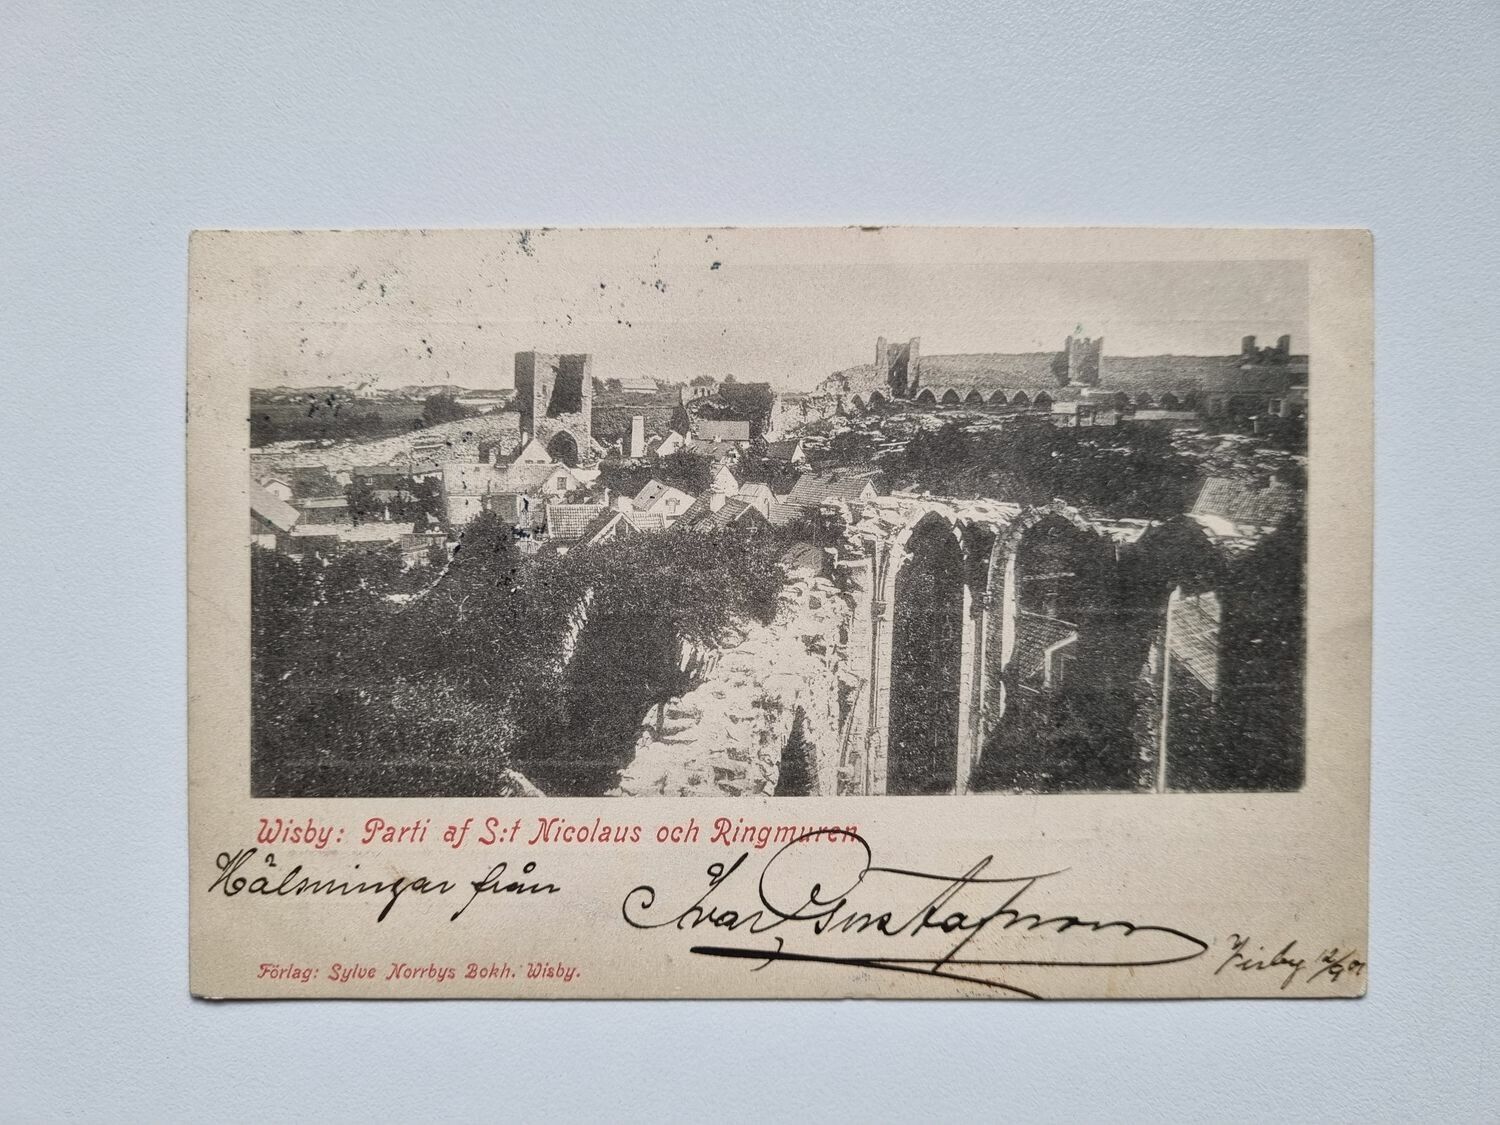 Wisby: Parti af S:t Nicolaus och Ringmuren
Hälsningar från
Ivar Gustafsson
Visby 12/9 01
Förlag: Sylve Norrbys Bokh. Wisby.